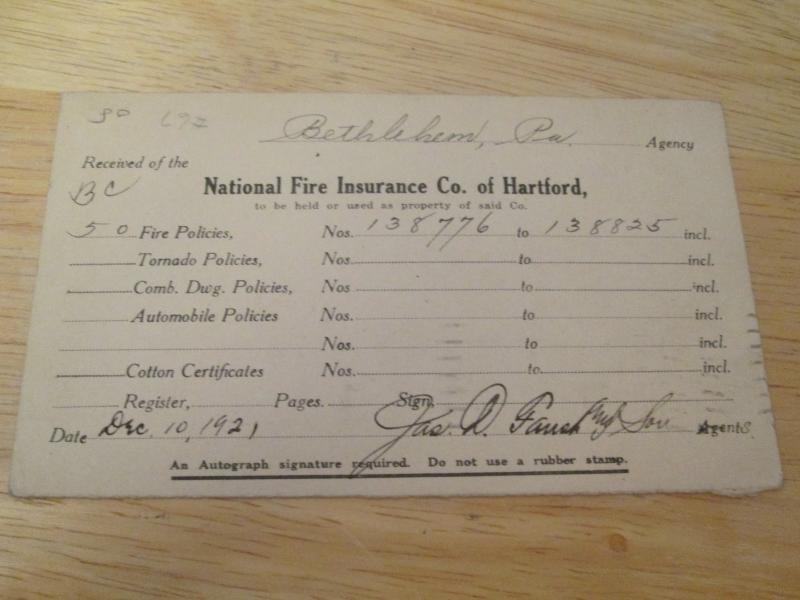 Bethlehem, Pa. Agency
Received of the
BC
National Fire Insurance Co. of Hartford,
to be held or used as property of said Co.
50 Fire Policies, Nos. 138776 to 138825 incl.
Tornado Policies, Nos. to incl.
Comb. Dwg. Policies, Nos to incl.
Automobile Policies Nos. to incl.
Nos. to incl.
Cotton Certificates Nos. to incl.
Register, Pages. Sign,
Date Dec. 10, 1921 Jas. D. Son Agents.
An Autograph signature required. Do not use a rubber stamp.